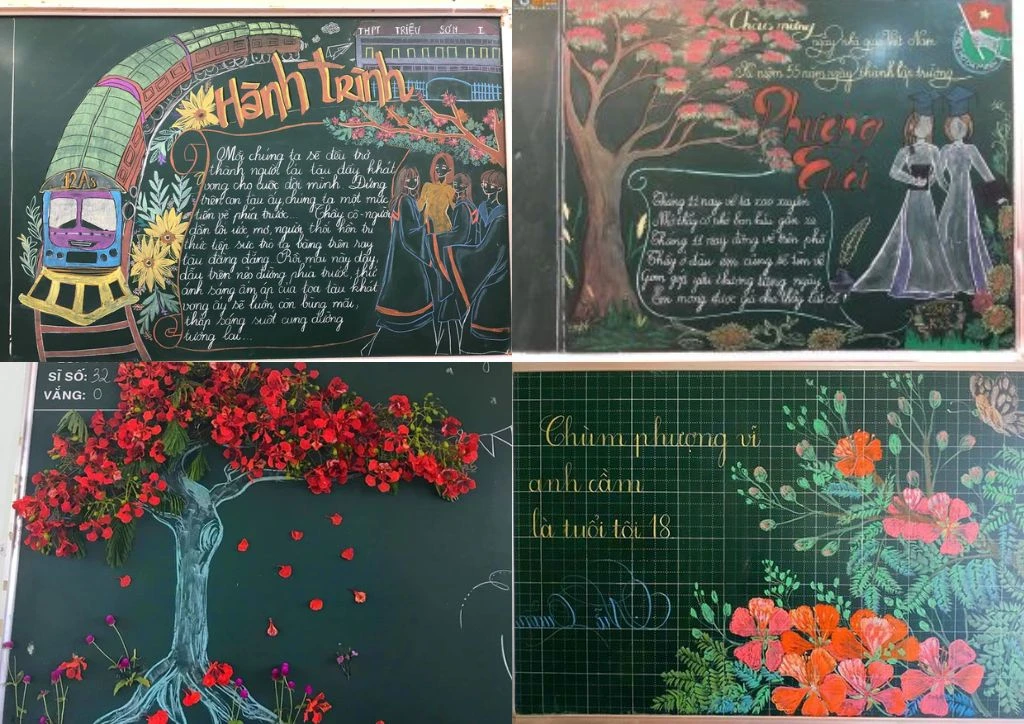 THPT TRIỆU SƠN I
Hành trình
12A5
Mỗi chúng ta sẽ đều trở
thành người lái tàu đầy khát
vọng cho cuộc đời mình. Đứng
trên con tàu ấy chúng ta một mực
tiến về phía trước... Thầy cô-người
dẫn lối ước mơ, người thổi hồn tri
thức tiếp sức trên ray
tàu đằng đẵng. Rồi mai này đây,
dẫu trên nẻo đường phía trước, thứ
ánh sáng ấm áp của tàu khát
vọng ấy sẽ luôn còn bùng mãi,
thắp sáng suốt cung đường
tương lai...
Chào mừng
ngày nhà giáo Việt Nam
Kỉ niệm 55 năm ngày thành lập trường
Phượng
Tháng 11 nay về ta xao xuyến
thầy cô nhớ bạn gần xa
Tháng 11 nay đông về trên phố
Thầy ở đâu em cũng sẽ tìm về
thương từng ngày
Em mong được cho thầy tất cả
SĨ SỐ: 32
VẮNG: 0
Chùm phượng vĩ
anh cầm
là tuổi tôi 18